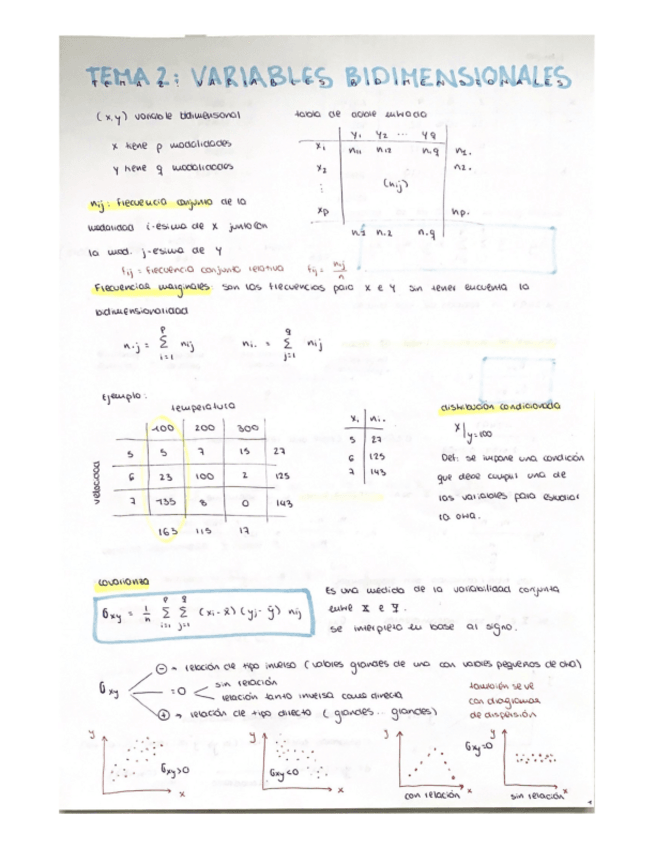 TEMA 2: VARIABLES BIDIMENSIONALES
(x,y) variable bidimensional
x tiene p modalidades
y tiene q modalidades
tabla de doble entrada
y₁ y₂ ... yq
x₁ n₁₁ n₁₂ n.q n₁.
x₂ n₂.
⋮ (nij)
xp np.
n.1 n.2 n.q
nij: frecuencia conjunta de la
modalidad i-esima de x junto con
la mod. j-esima de y
fij = frecuencia conjunta relativa fij = nij/n
Frecuencias marginales: son las frecuencias para x e y sin tener encuenta la
bidimensionalidad
n.j = Σ(i=1, p) nij ni. = Σ(j=1, q) nij
Ejemplo:
temperatura
100 200 300
velocidad
5 5 7 15 27
6 23 100 2 125
7 135 8 0 143
163 115 17
xi ni.
5 27
6 125
7 143
distribución condicionada
x|y=100
Def: se impone una condición
que debe cumplir una de
las variables para estudiar
la otra.
covarianza
Gxy = 1/n Σ(i=1, p) Σ(j=1, q) (xi - x̄) (yj - ȳ) nij
Es una medida de la variabilidad conjunta
entre x e y.
se interpreta en base al signo.
Gxy
⊖ → relación de tipo inverso (valores grandes de una con valores pequeños de otra)
= 0
sin relación
relación tanto inversa como directa
⊕ → relación de tipo directo (grandes... grandes)
también se ve
con diagramas
de dispersión
y x Gxy>0
y x Gxy<0
y x con relación
Gxy=0
y x sin relación